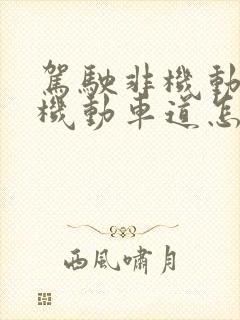 駕駛非機動
機動車道怎
西風嘯月